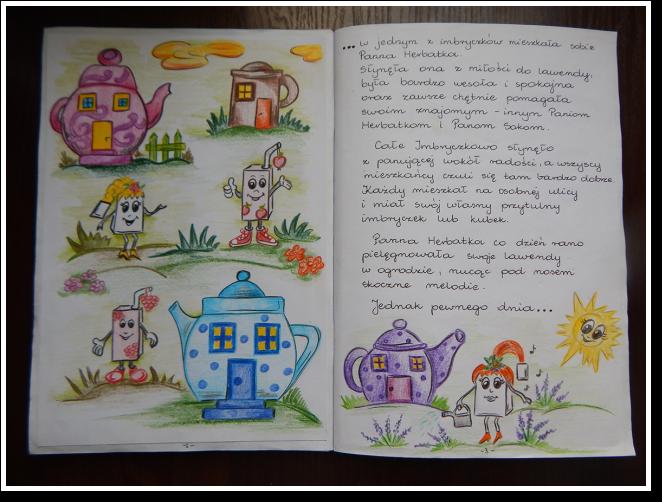 ... w jednym z imbryczków mieszkała sobie
Panna Herbatka.
Słynęła ona z miłości do lawendy,
była bardzo wesoła i spokojna
oraz zawsze chętnie pomagała
swoim znajomym - innym Paniom
Herbatkom i Panom Sokom.
Całe Imbryczkowo słynęło
z panującej wokół radości, a wszyscy
mieszkańcy czuli się tam bardzo dobrze.
Każdy mieszkał na osobnej ulicy
i miał swój własny przytulny
imbryczek lub kubek.
Panna Herbatka co dzień rano
pielęgnowała swoje lawendy
w ogrodzie, nucąc pod nosem
skoczne melodie.
Jednak pewnego dnia...
-2-
-3-